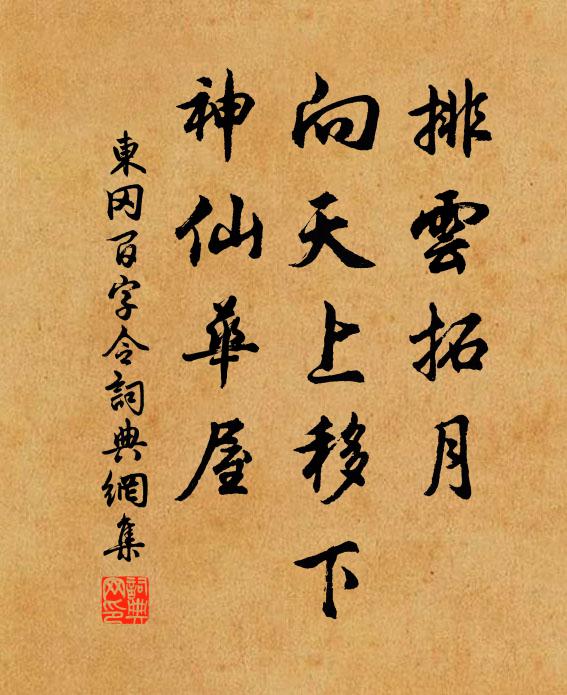 排雲拓月
向天上移下
神仙華屋
東冈百字令詞典網集
詞典
网印